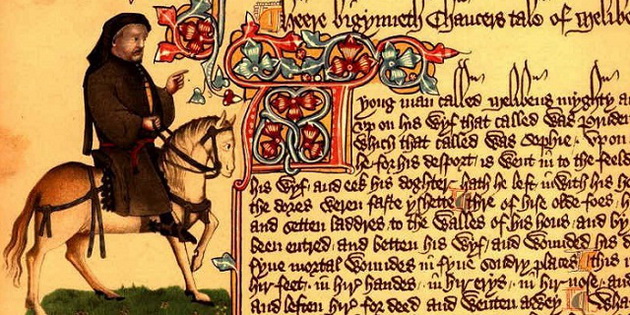 Heere bigynneth Chaucers tale of Melibe
A yong man called Melibeus myghty a
up on his wyf that called was Pruden
Which that called was Sophie Upon
he for his desport is went in to the feeld
his wyf and eek his doghter hath he left in with his ho
the dores weren faste yshette thre of hise olde foes h
and setten laddres to the walles of his hous and by
been entred and betten his wyf and wounded his d
fyue mortal woundes in fyue sondry places this i
hir feet in hir handes in hir erys in hir nose and
and leften hir for deed and wenten awey Wha